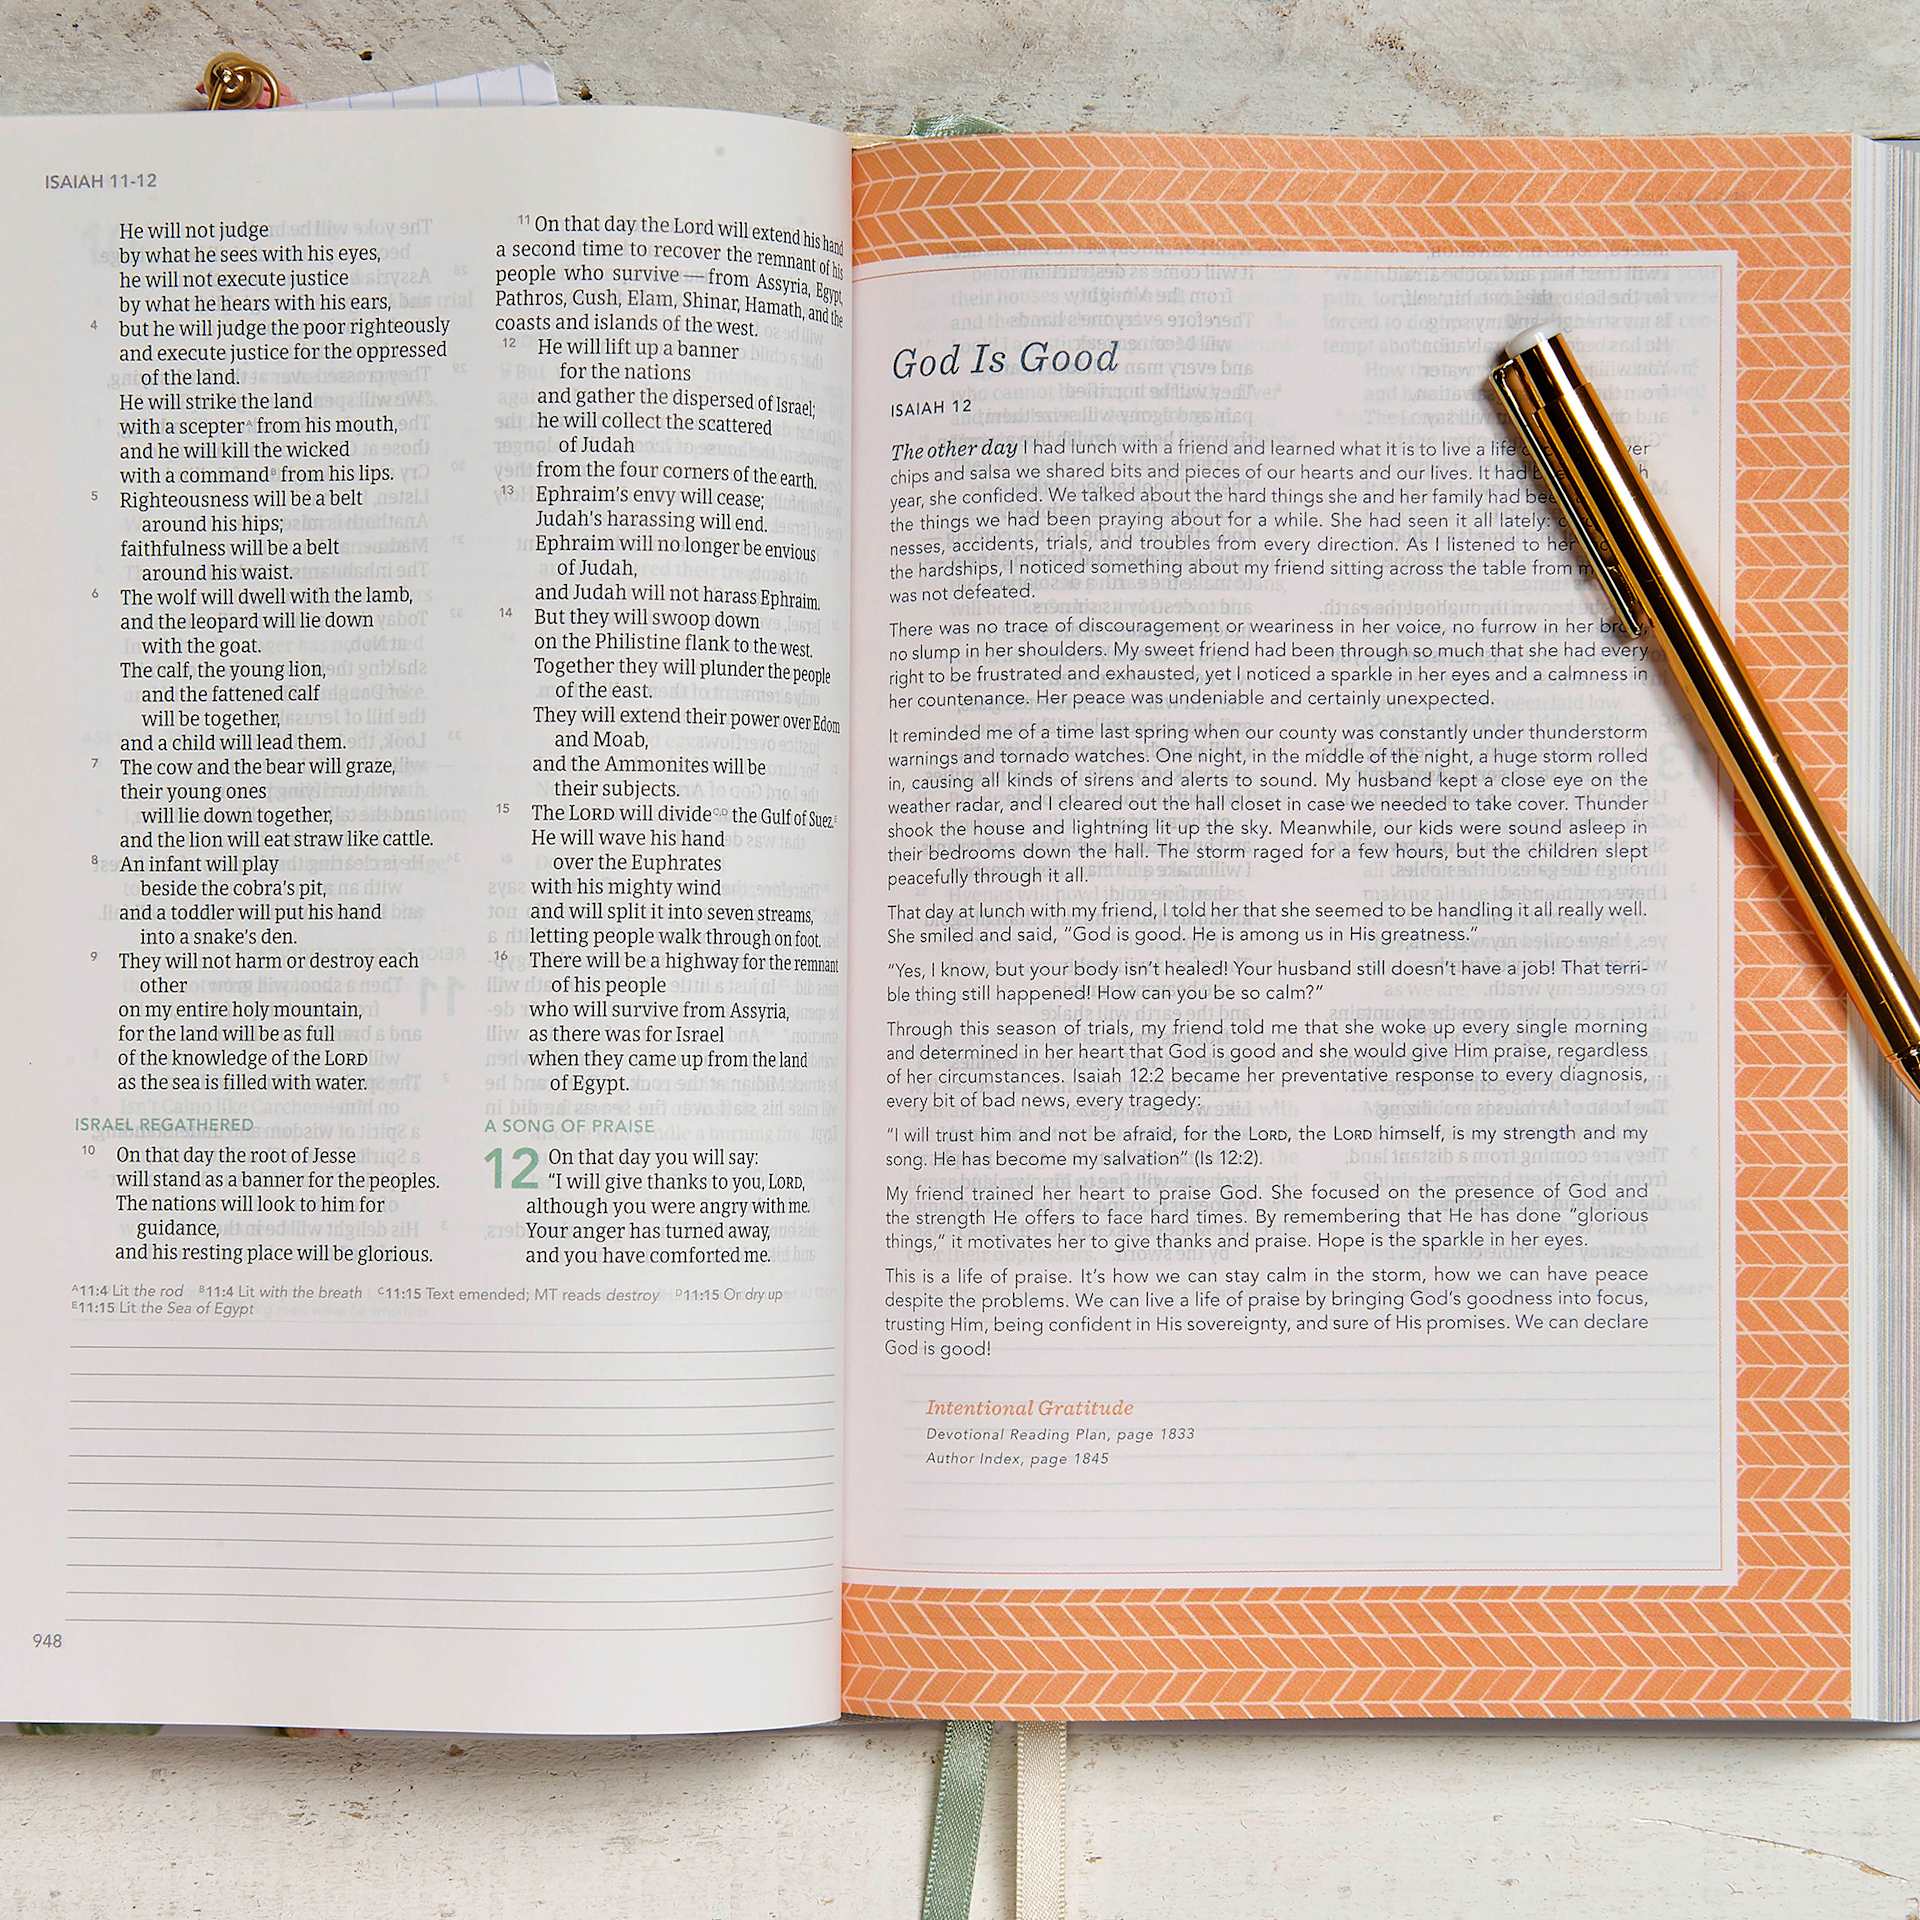 ISAIAH 11-12
He will not judge
by what he sees with his eyes,
he will not execute justice
by what he hears with his ears,
4 but he will judge the poor righteously
and execute justice for the oppressed
of the land.
He will strike the land
with a scepterᴬ from his mouth,
and he will kill the wicked
with a commandᴮ from his lips.
5 Righteousness will be a belt
around his hips;
faithfulness will be a belt
around his waist.
6 The wolf will dwell with the lamb,
and the leopard will lie down
with the goat.
The calf, the young lion,
and the fattened calf
will be together,
and a child will lead them.
7 The cow and the bear will graze,
their young ones
will lie down together,
and the lion will eat straw like cattle.
8 An infant will play
beside the cobra's pit,
and a toddler will put his hand
into a snake's den.
9 They will not harm or destroy each
other
on my entire holy mountain,
for the land will be as full
of the knowledge of the LORD
as the sea is filled with water.
ISRAEL REGATHERED
10 On that day the root of Jesse
will stand as a banner for the peoples.
The nations will look to him for
guidance,
and his resting place will be glorious.
11 On that day the Lord will extend his hand
a second time to recover the remnant of his
people who survive — from Assyria, Egypt,
Pathros, Cush, Elam, Shinar, Hamath, and the
coasts and islands of the west.
12 He will lift up a banner
for the nations
and gather the dispersed of Israel;
he will collect the scattered
of Judah
from the four corners of the earth.
13 Ephraim's envy will cease;
Judah's harassing will end.
Ephraim will no longer be envious
of Judah,
and Judah will not harass Ephraim.
14 But they will swoop down
on the Philistine flank to the west.
Together they will plunder the people
of the east.
They will extend their power over Edom
and Moab,
and the Ammonites will be
their subjects.
15 The LORD will divideᶜ,ᴰ the Gulf of Suez.ᴱ
He will wave his hand
over the Euphrates
with his mighty wind
and will split it into seven streams,
letting people walk through on foot.
16 There will be a highway for the remnant
of his people
who will survive from Assyria,
as there was for Israel
when they came up from the land
of Egypt.
A SONG OF PRAISE
12 On that day you will say:
"I will give thanks to you, LORD,
although you were angry with me.
Your anger has turned away,
and you have comforted me.
ᴬ11:4 Lit the rod ᴮ11:4 Lit with the breath ᶜ11:15 Text emended; MT reads destroy ᴰ11:15 Or dry up
ᴱ11:15 Lit the Sea of Egypt
948
God Is Good
ISAIAH 12
The other day I had lunch with a friend and learned what it is to live a life
chips and salsa we shared bits and pieces of our hearts and our lives. It had
year, she confided. We talked about the hard things she and her family had
the things we had been praying about for a while. She had seen it all lately:
nesses, accidents, trials, and troubles from every direction. As I listened to her
the hardships, I noticed something about my friend sitting across the table from
was not defeated.
There was no trace of discouragement or weariness in her voice, no furrow in her brow,
no slump in her shoulders. My sweet friend had been through so much that she had every
right to be frustrated and exhausted, yet I noticed a sparkle in her eyes and a calmness in
her countenance. Her peace was undeniable and certainly unexpected.
It reminded me of a time last spring when our county was constantly under thunderstorm
warnings and tornado watches. One night, in the middle of the night, a huge storm rolled
in, causing all kinds of sirens and alerts to sound. My husband kept a close eye on the
weather radar, and I cleared out the hall closet in case we needed to take cover. Thunder
shook the house and lightning lit up the sky. Meanwhile, our kids were sound asleep in
their bedrooms down the hall. The storm raged for a few hours, but the children slept
peacefully through it all.
That day at lunch with my friend, I told her that she seemed to be handling it all really well.
She smiled and said, "God is good. He is among us in His greatness."
"Yes, I know, but your body isn't healed! Your husband still doesn't have a job! That terri-
ble thing still happened! How can you be so calm?"
Through this season of trials, my friend told me that she woke up every single morning
and determined in her heart that God is good and she would give Him praise, regardless
of her circumstances. Isaiah 12:2 became her preventative response to every diagnosis,
every bit of bad news, every tragedy:
"I will trust him and not be afraid, for the LORD, the LORD himself, is my strength and my
song. He has become my salvation" (Is 12:2).
My friend trained her heart to praise God. She focused on the presence of God and
the strength He offers to face hard times. By remembering that He has done "glorious
things," it motivates her to give thanks and praise. Hope is the sparkle in her eyes.
This is a life of praise. It's how we can stay calm in the storm, how we can have peace
despite the problems. We can live a life of praise by bringing God's goodness into focus,
trusting Him, being confident in His sovereignty, and sure of His promises. We can declare
God is good!
Intentional Gratitude
Devotional Reading Plan, page 1833
Author Index, page 1845